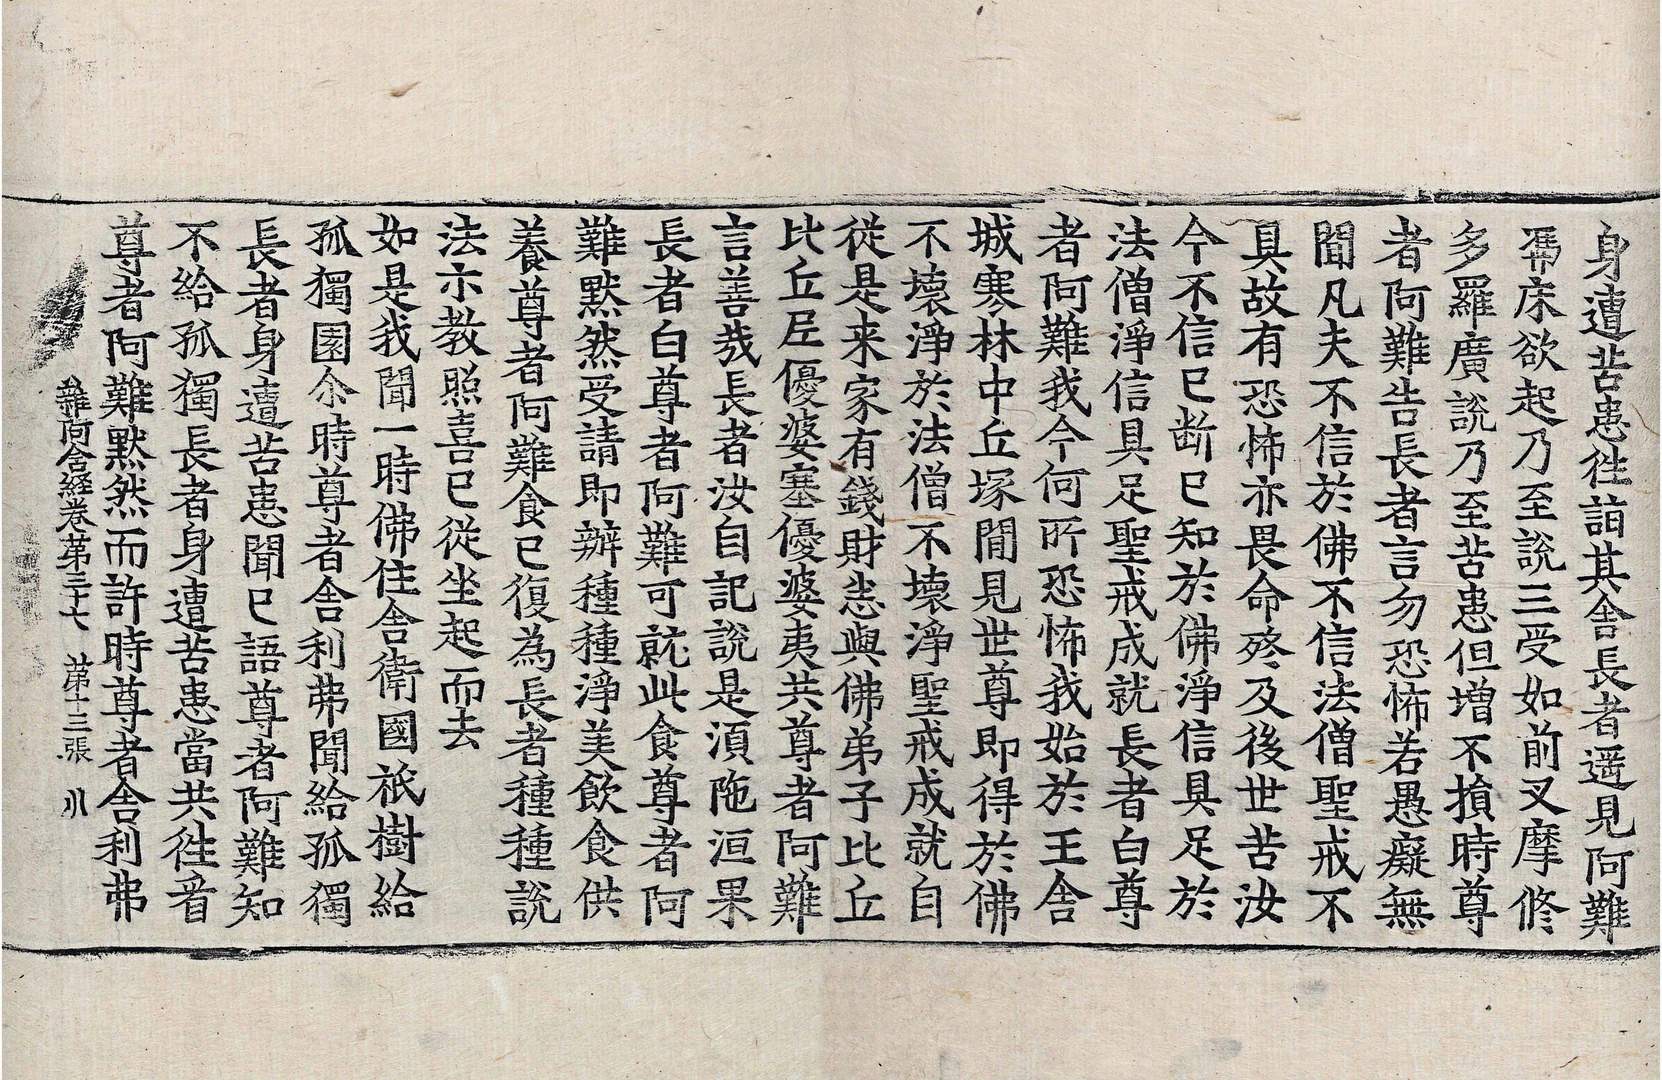 身遭苦患往詣其舍長者遥見阿難
馮床欲起乃至說三受如前叉摩修
多羅廣說乃至苦患但增不損時尊
者阿難告長者言勿恐怖若愚癡無
聞凡夫不信於佛不信法僧聖戒不
具故有恐怖亦畏命終及後世苦汝
今不信已断已知於佛淨信具足於
法僧淨信具足聖戒成就長者白尊
者阿難我今何所恐怖我始於王舍
城寒林中丘塚間見世尊即得於佛
不壞淨於法僧不壞淨聖戒成就自
從是来家有錢財悉與佛弟子比丘
比丘尼優婆塞優婆夷共尊者阿難
言善哉長者汝自記說是湏陁洹果
長者白尊者阿難可就此食尊者阿
難黙然受請即辦種種淨美飲食供
養尊者阿難食已復為長者種種說
法示教照喜已從坐起而去
如是我聞一時佛住舍衛國祇樹給
孤獨園尒時尊者舍利弗聞給孤獨
長者身遭苦患聞已語尊者阿難知
不給孤獨長者身遭苦患當共往看
尊者阿難黙然而許時尊者舍利弗
雜阿含経卷苐三十七 苐十三張 川